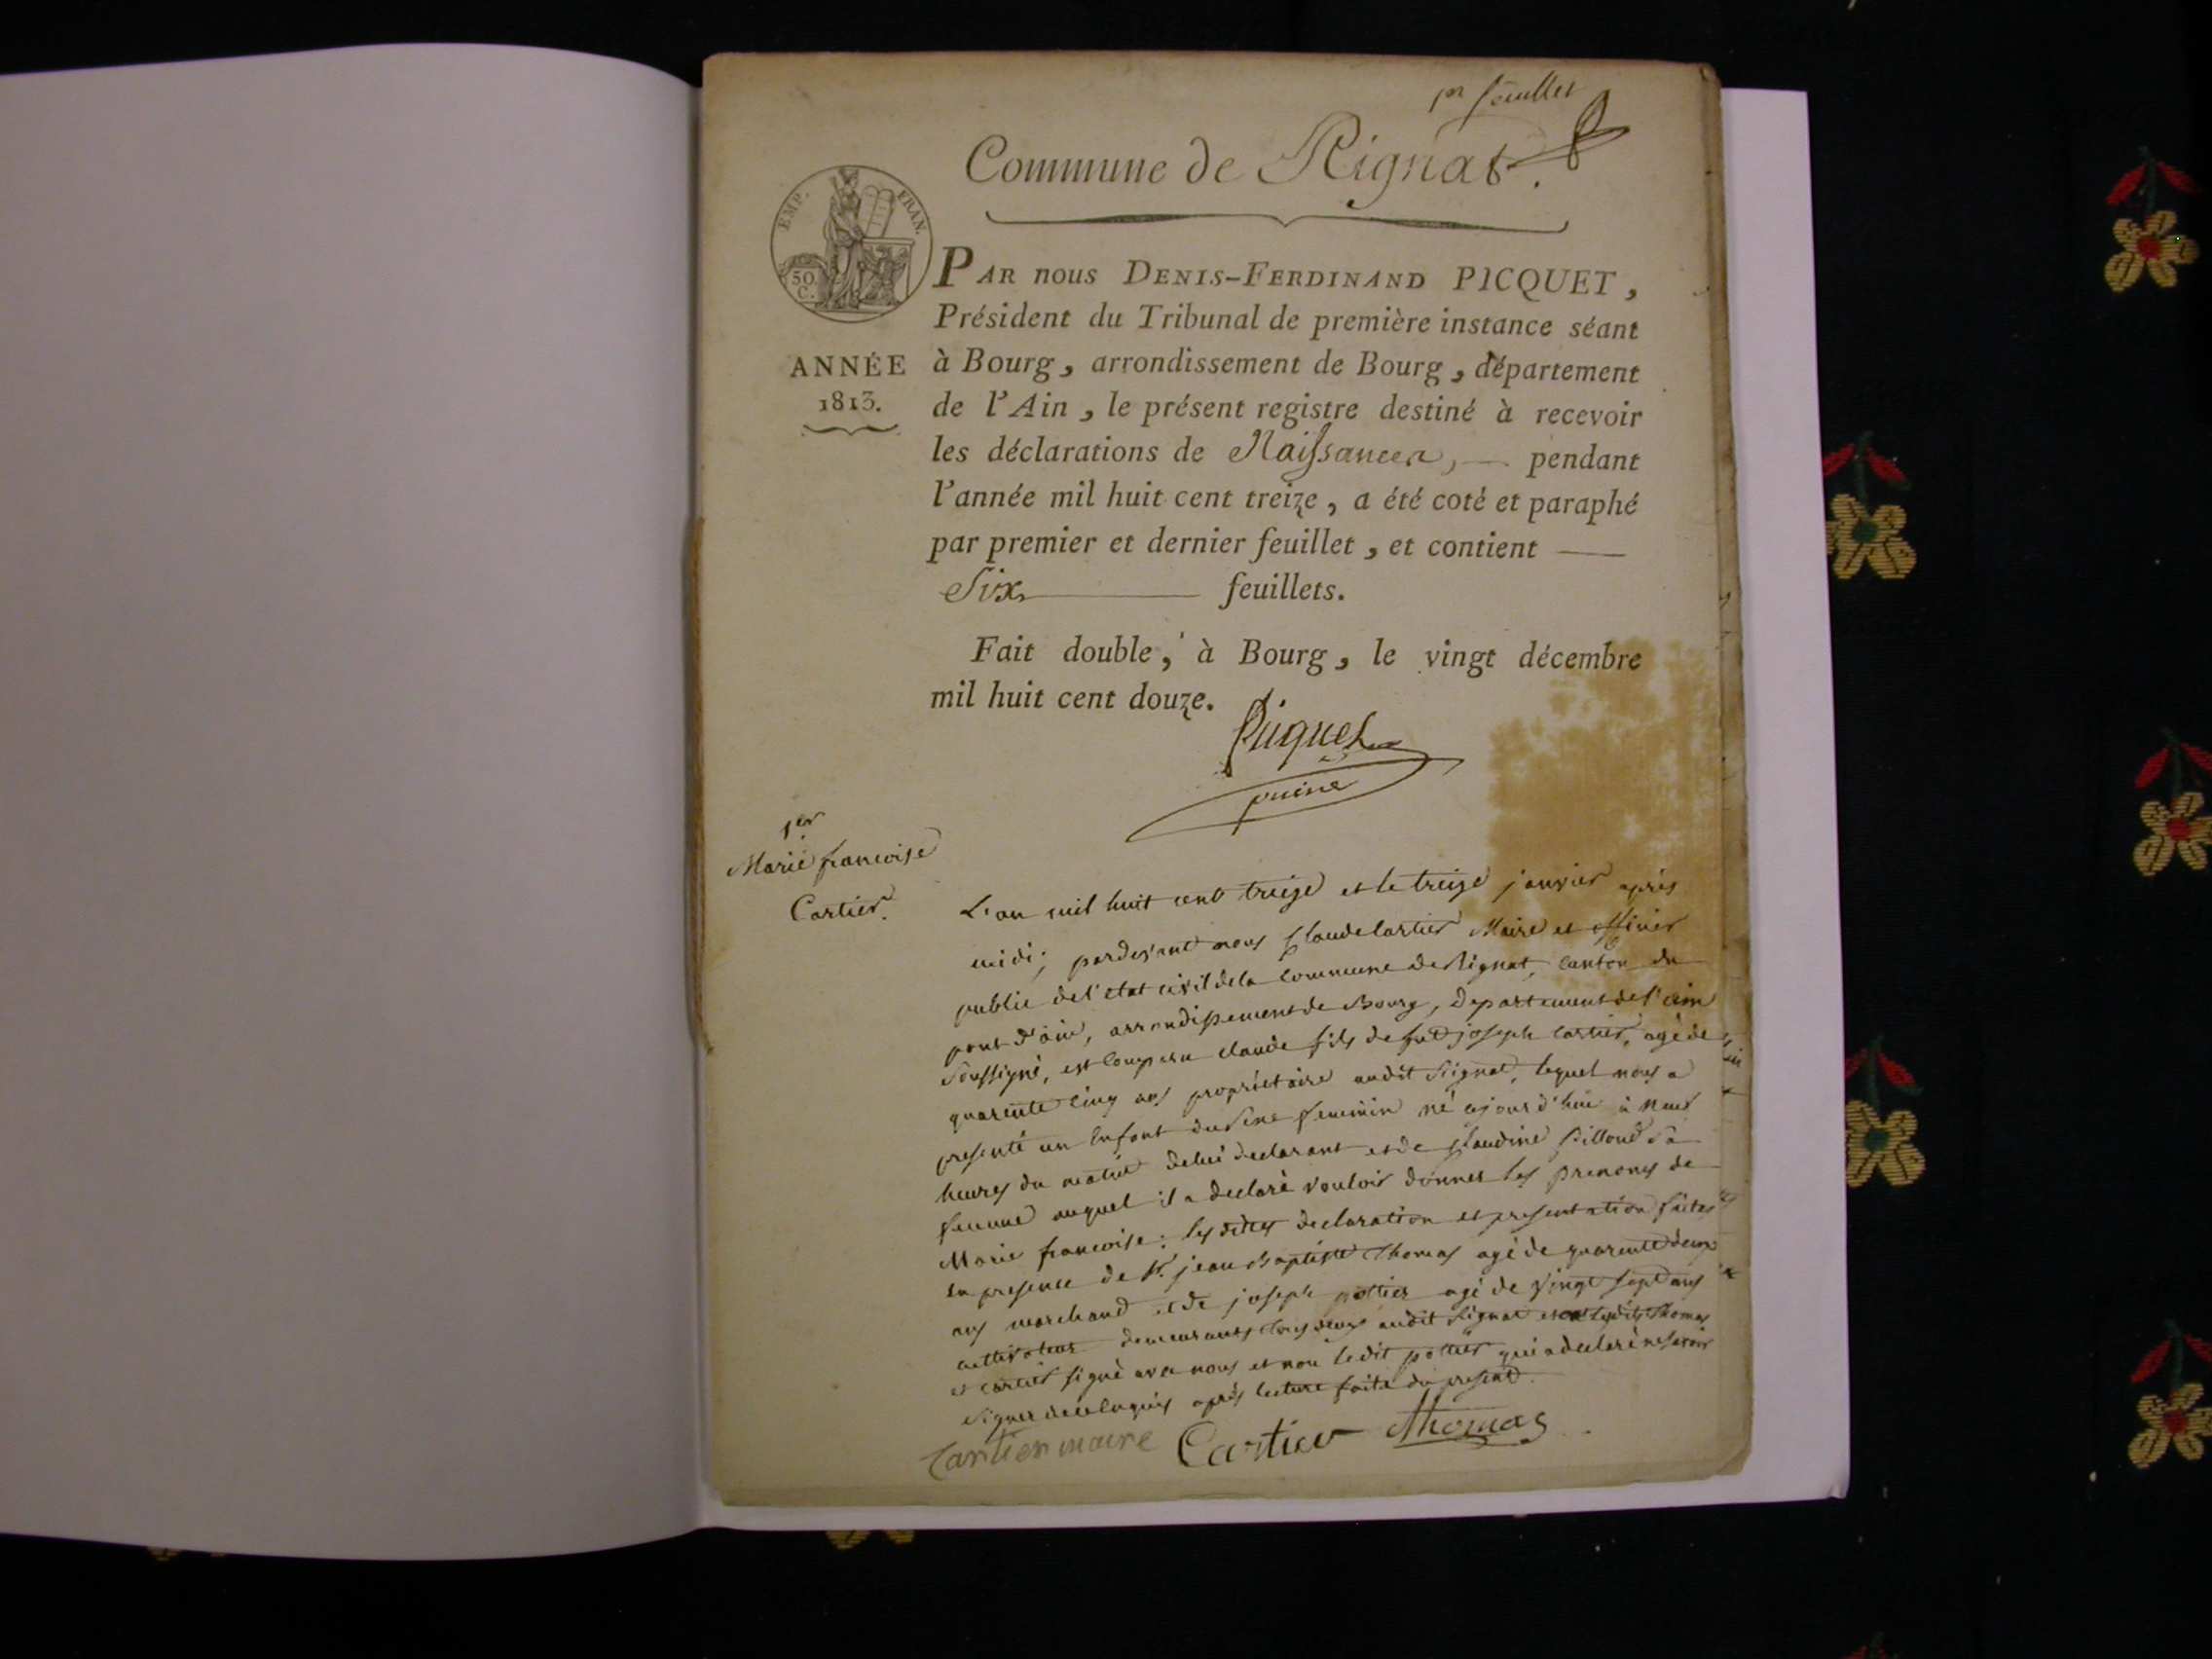 1er feuillet
Commune de Rignat.
EMP. FRAN.
50 C.
PAR nous DENIS-FERDINAND PICQUET,
Président du Tribunal de première instance séant
ANNÉE
1813.
à Bourg, arrondissement de Bourg, département
de l'Ain, le présent registre destiné à recevoir
les déclarations de Naissances, — pendant
l'année mil huit cent treize, a été coté et paraphé
par premier et dernier feuillet, et contient —
Six — feuillets.
Fait double, à Bourg, le vingt décembre
mil huit cent douze.
Picquet
1er
Marie francoise
Cartier.
L'an mil huit cent treize et le treize janvier après
midi; pardevant nous Claude Cartier Maire et officier
public de l'etat civil de la Commune de Rignat, canton de
pont d'ain, arrondissement de Bourg, departement de l'ain
soussigné, est comparu claude fils de feu joseph Cartier, agé de
quarente cinq ans propriètaire audit Rignat, lequel nous a
presenté un Enfant du sexe feminin né cejourd'hui à neuf
heures du matin de lui declarant et de Claudine Pilloud sa
femme auquel il a declaré vouloir donner les prenoms de
Marie francoise: les dites declaration et presentation faites
en presence de Sr. jean Baptiste Thomas agé de quarente deux
ans marchand et de joseph pottier agé de vingt sept ans
cultivateur demeurants tous deux audit Rignat et ont lesdits Thomas
et cartier signé avec nous et non le dit pottier qui a declaré ne savoir
signer de ce enquis après lecture faite du present.
Cartier maire Cartier Thomas